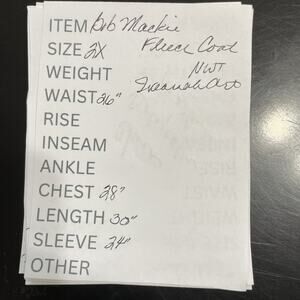 ITEM Bob Mackie
SIZE 2X Fleece Coat
WEIGHT NWT
WAIST 26"
RISE
INSEAM
ANKLE
CHEST 28"
LENGTH 30"
SLEEVE 24"
OTHER